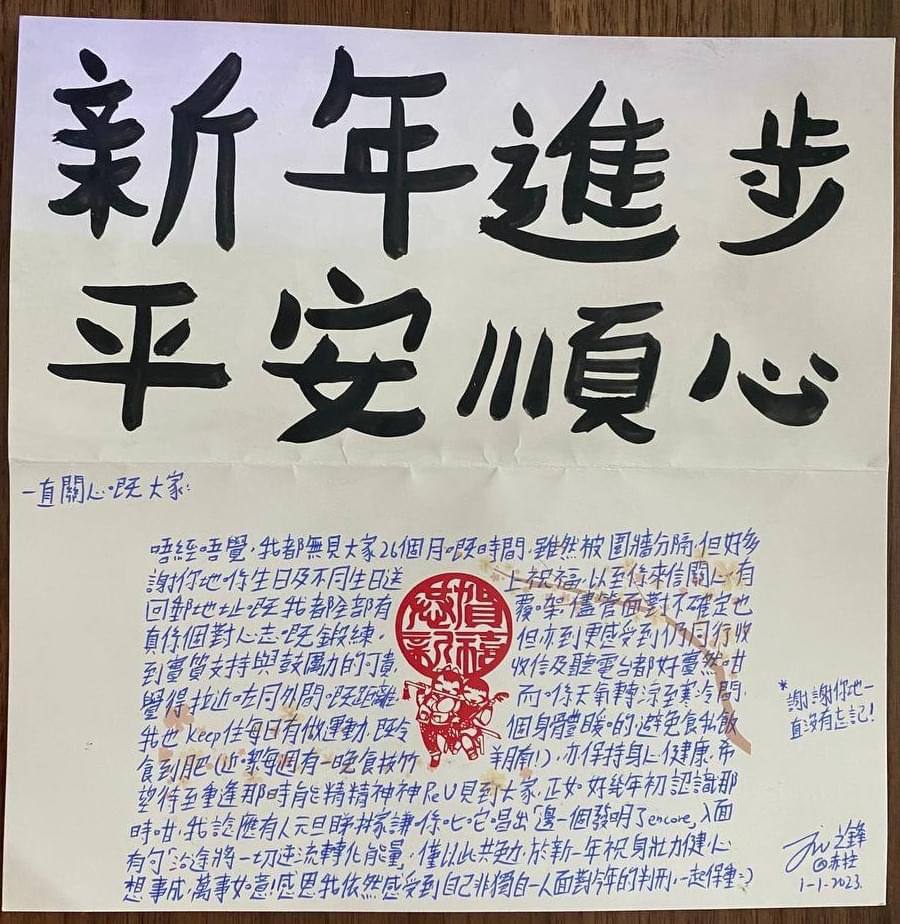 新年進步
平安順心
一直關心嘅大家:
唔經唔覺,我都無見大家26個月嘅時間,雖然被圍牆分隔,但好多
謝你地喺生日及不同生日送上祝福,以至係來信關心,有
回郵地址嘅我都全部有覆架!儘管面對不確定也
真係個對心志嘅鍛練,但亦到更感受到仍同行收
到實質支持與鼓勵力的可貴,收信及聽電台都好驀然咁
覺得拉近咗同外間嘅距離,而喺天氣轉涼至寒冷間,
我也keep住每日有做運動,既令個身體暖啲避免食私飯
食到肥(近嚟每週有一晚食枝竹羊腩!),亦保持身心健康,希
望待至重逢那時能精精神神ReU見到大家,正如好幾年初認識那
時咁,我診歷有人元旦睇林家謙喺叱咤唱出「邊一個發明了encore」,入面
有句「沿途將一切逆流轉化能量」,僅以此共勉,於新一年祝身壯力健,心
想事成,萬事如意!感恩我依然感受到自己非獨自一人面對今年的判刑,一起保重:)
*謝謝你地一
直沒有忘記!
之鋒
@赤柱
1-1-2023.
恭賀
新禧